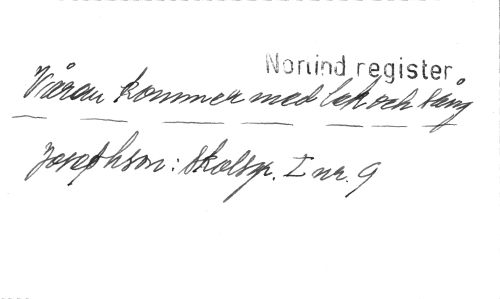 Norlind register
Våren kommer med lek och sång
Josephson: Skolsgr. I nr. 9